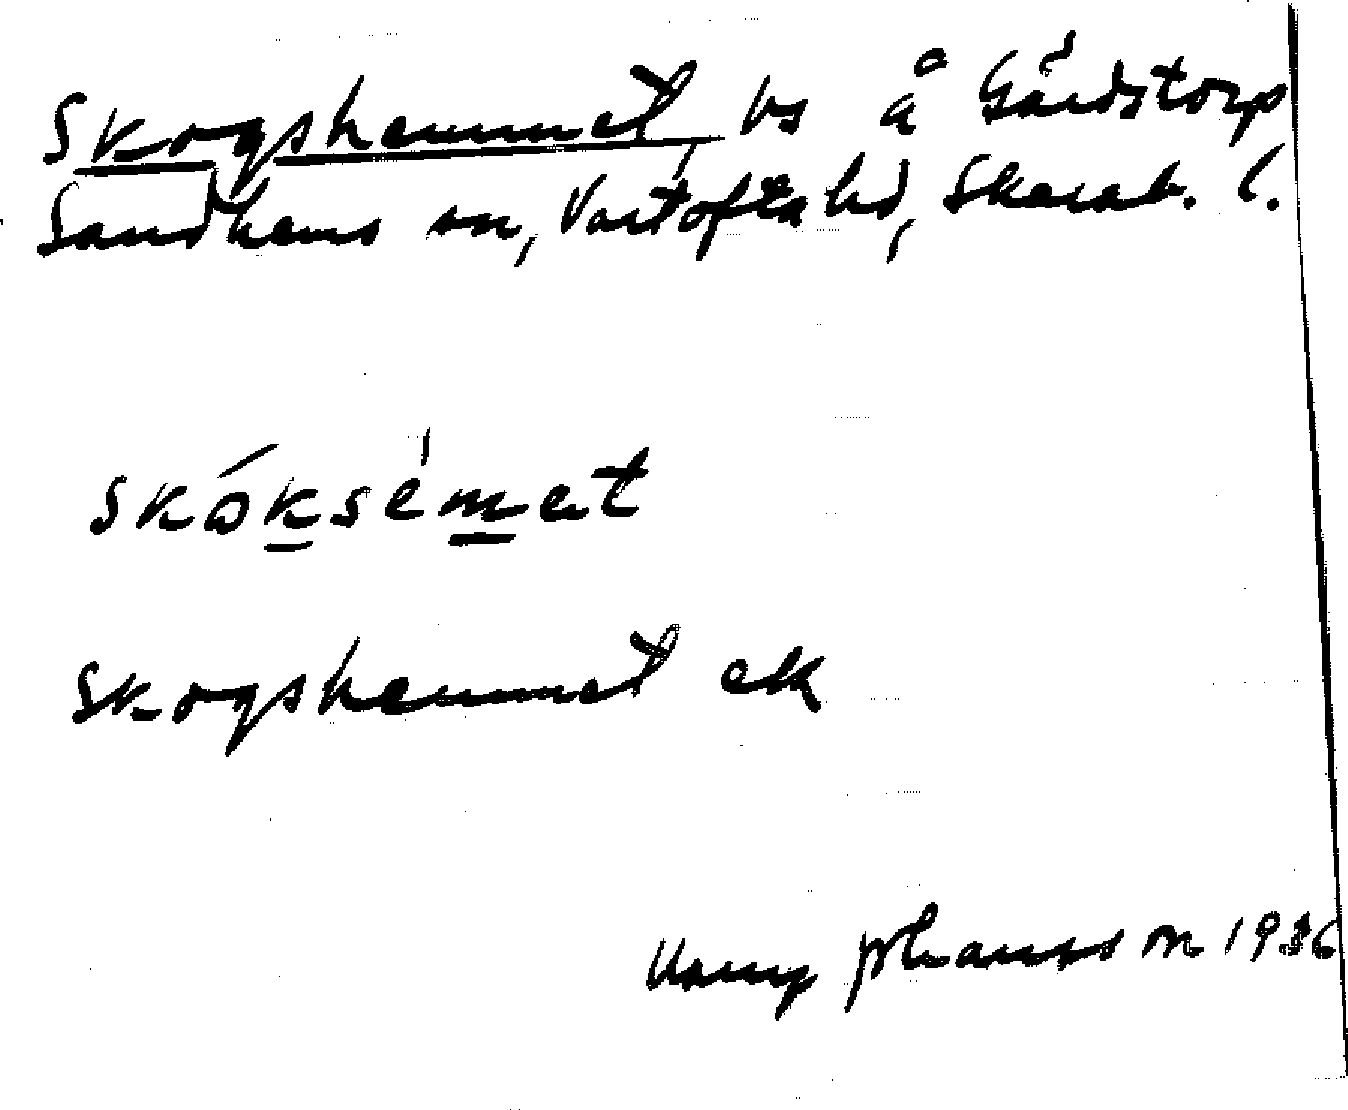 Skogshemmet bs å Gårdstorp
Sandhems sn, Vartofta hd, Skarab. l.
skóksémet
Skogshemmet ek
Johansson 1936